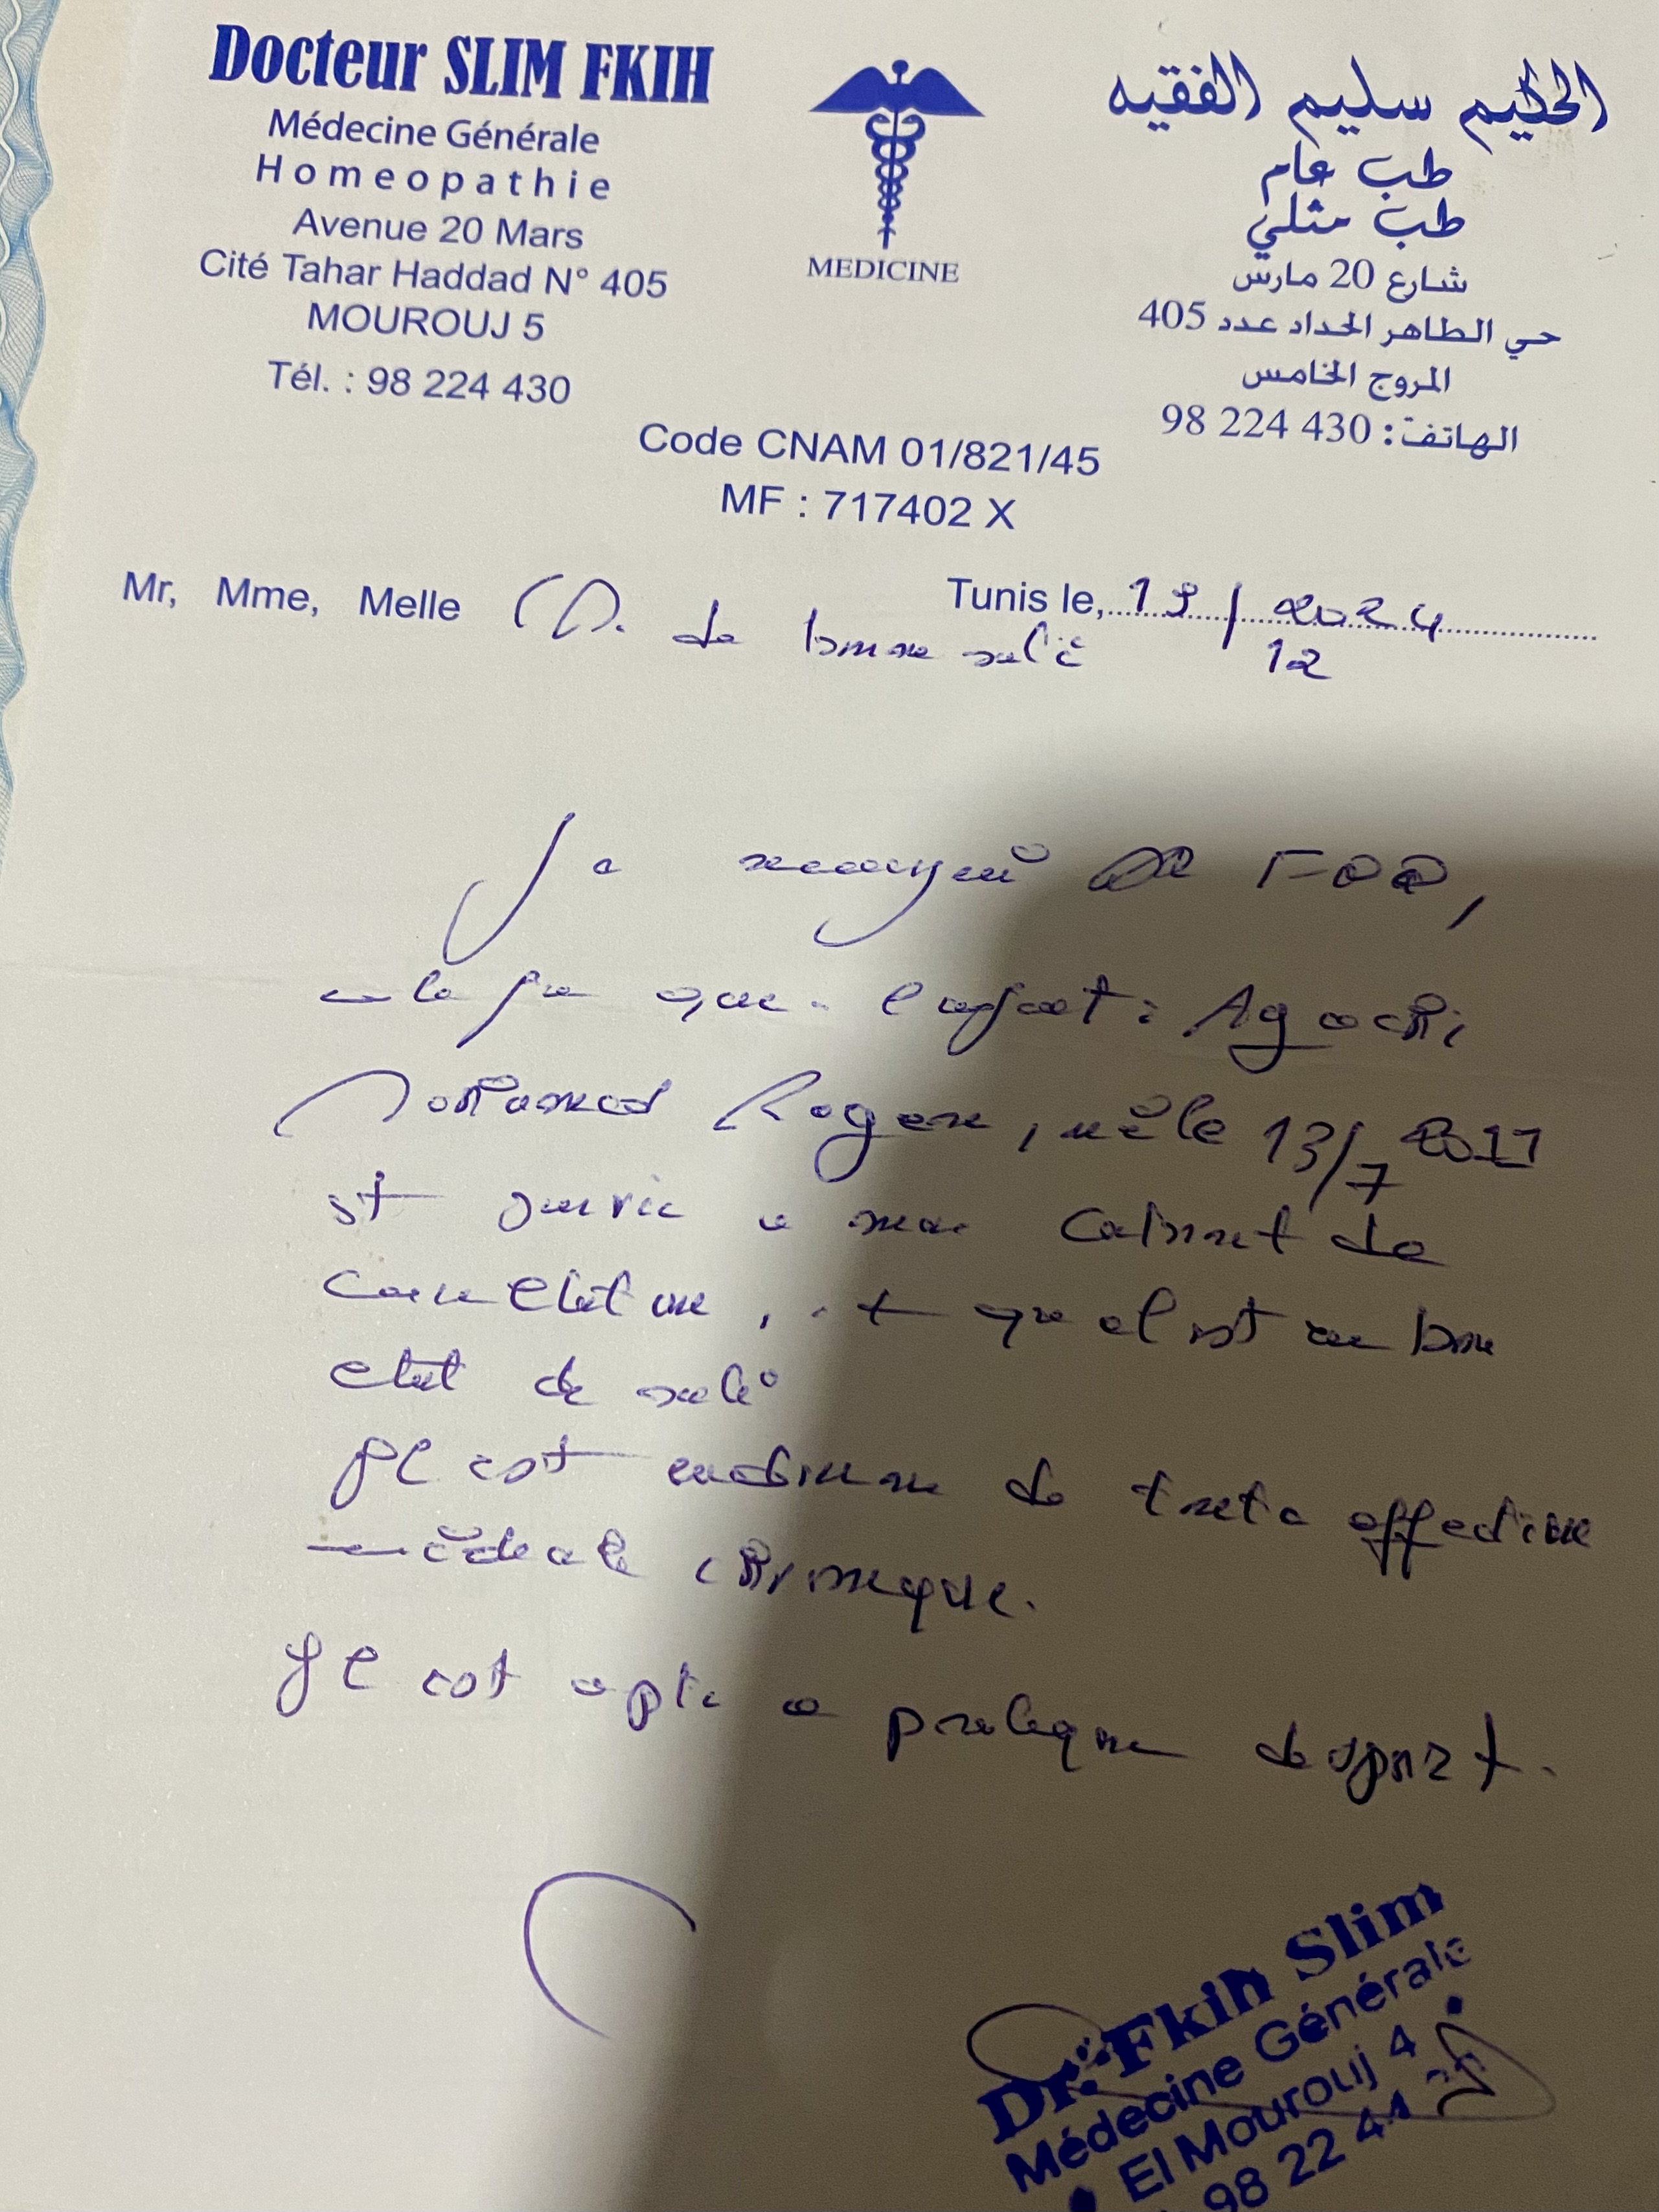 Docteur SLIM FKIH
Médecine Générale
Homeopathie
Avenue 20 Mars
Cité Tahar Haddad N° 405
MOUROUJ 5
Tél. : 98 224 430
MEDICINE
الحكيم سليم الفقيه
طب عام
طب مثلي
شارع 20 مارس
حي الطاهر الحداد عدد 405
المروج الخامس
الهاتف: 430 224 98
Code CNAM 01/821/45
MF : 717402 X
Mr, Mme, Melle
Tunis le, 19/12 2024
de bonne santé
Je soussigné DR FKIH,
que l'enfant :
Mohamed Rayen, né le 13/7 2017
est suivie a mon Cabinet de
Consultation, et que el est en bon
etat de santé
Il est indemne de toute affection
médicale chronique.
Il est apte a pratique de sport.
Dr. Fkih Slim
Médecine Générale
El Mourouj 4
98 22 44